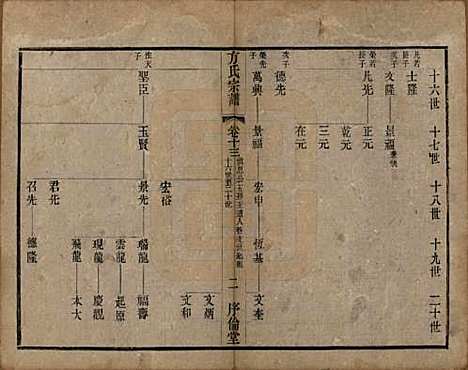 十六世 十七世 十八世 十九世 二十世
凡若長子 士隆
次子 文隆 景福
榮若長子 凡先 正元
乾元
三元
在元
次子 德先
榮先子 萬興 景福 宏申 恆基 文奎
方氏宗譜 卷十三 十六世至二十世 二 序倫堂
性天子 聖臣 玉賢 宏裕 文炳
文和
景先 瑞龍 福壽
雲龍 起原
現龍 慶觀
飛龍 本大
君先
召先 德隆